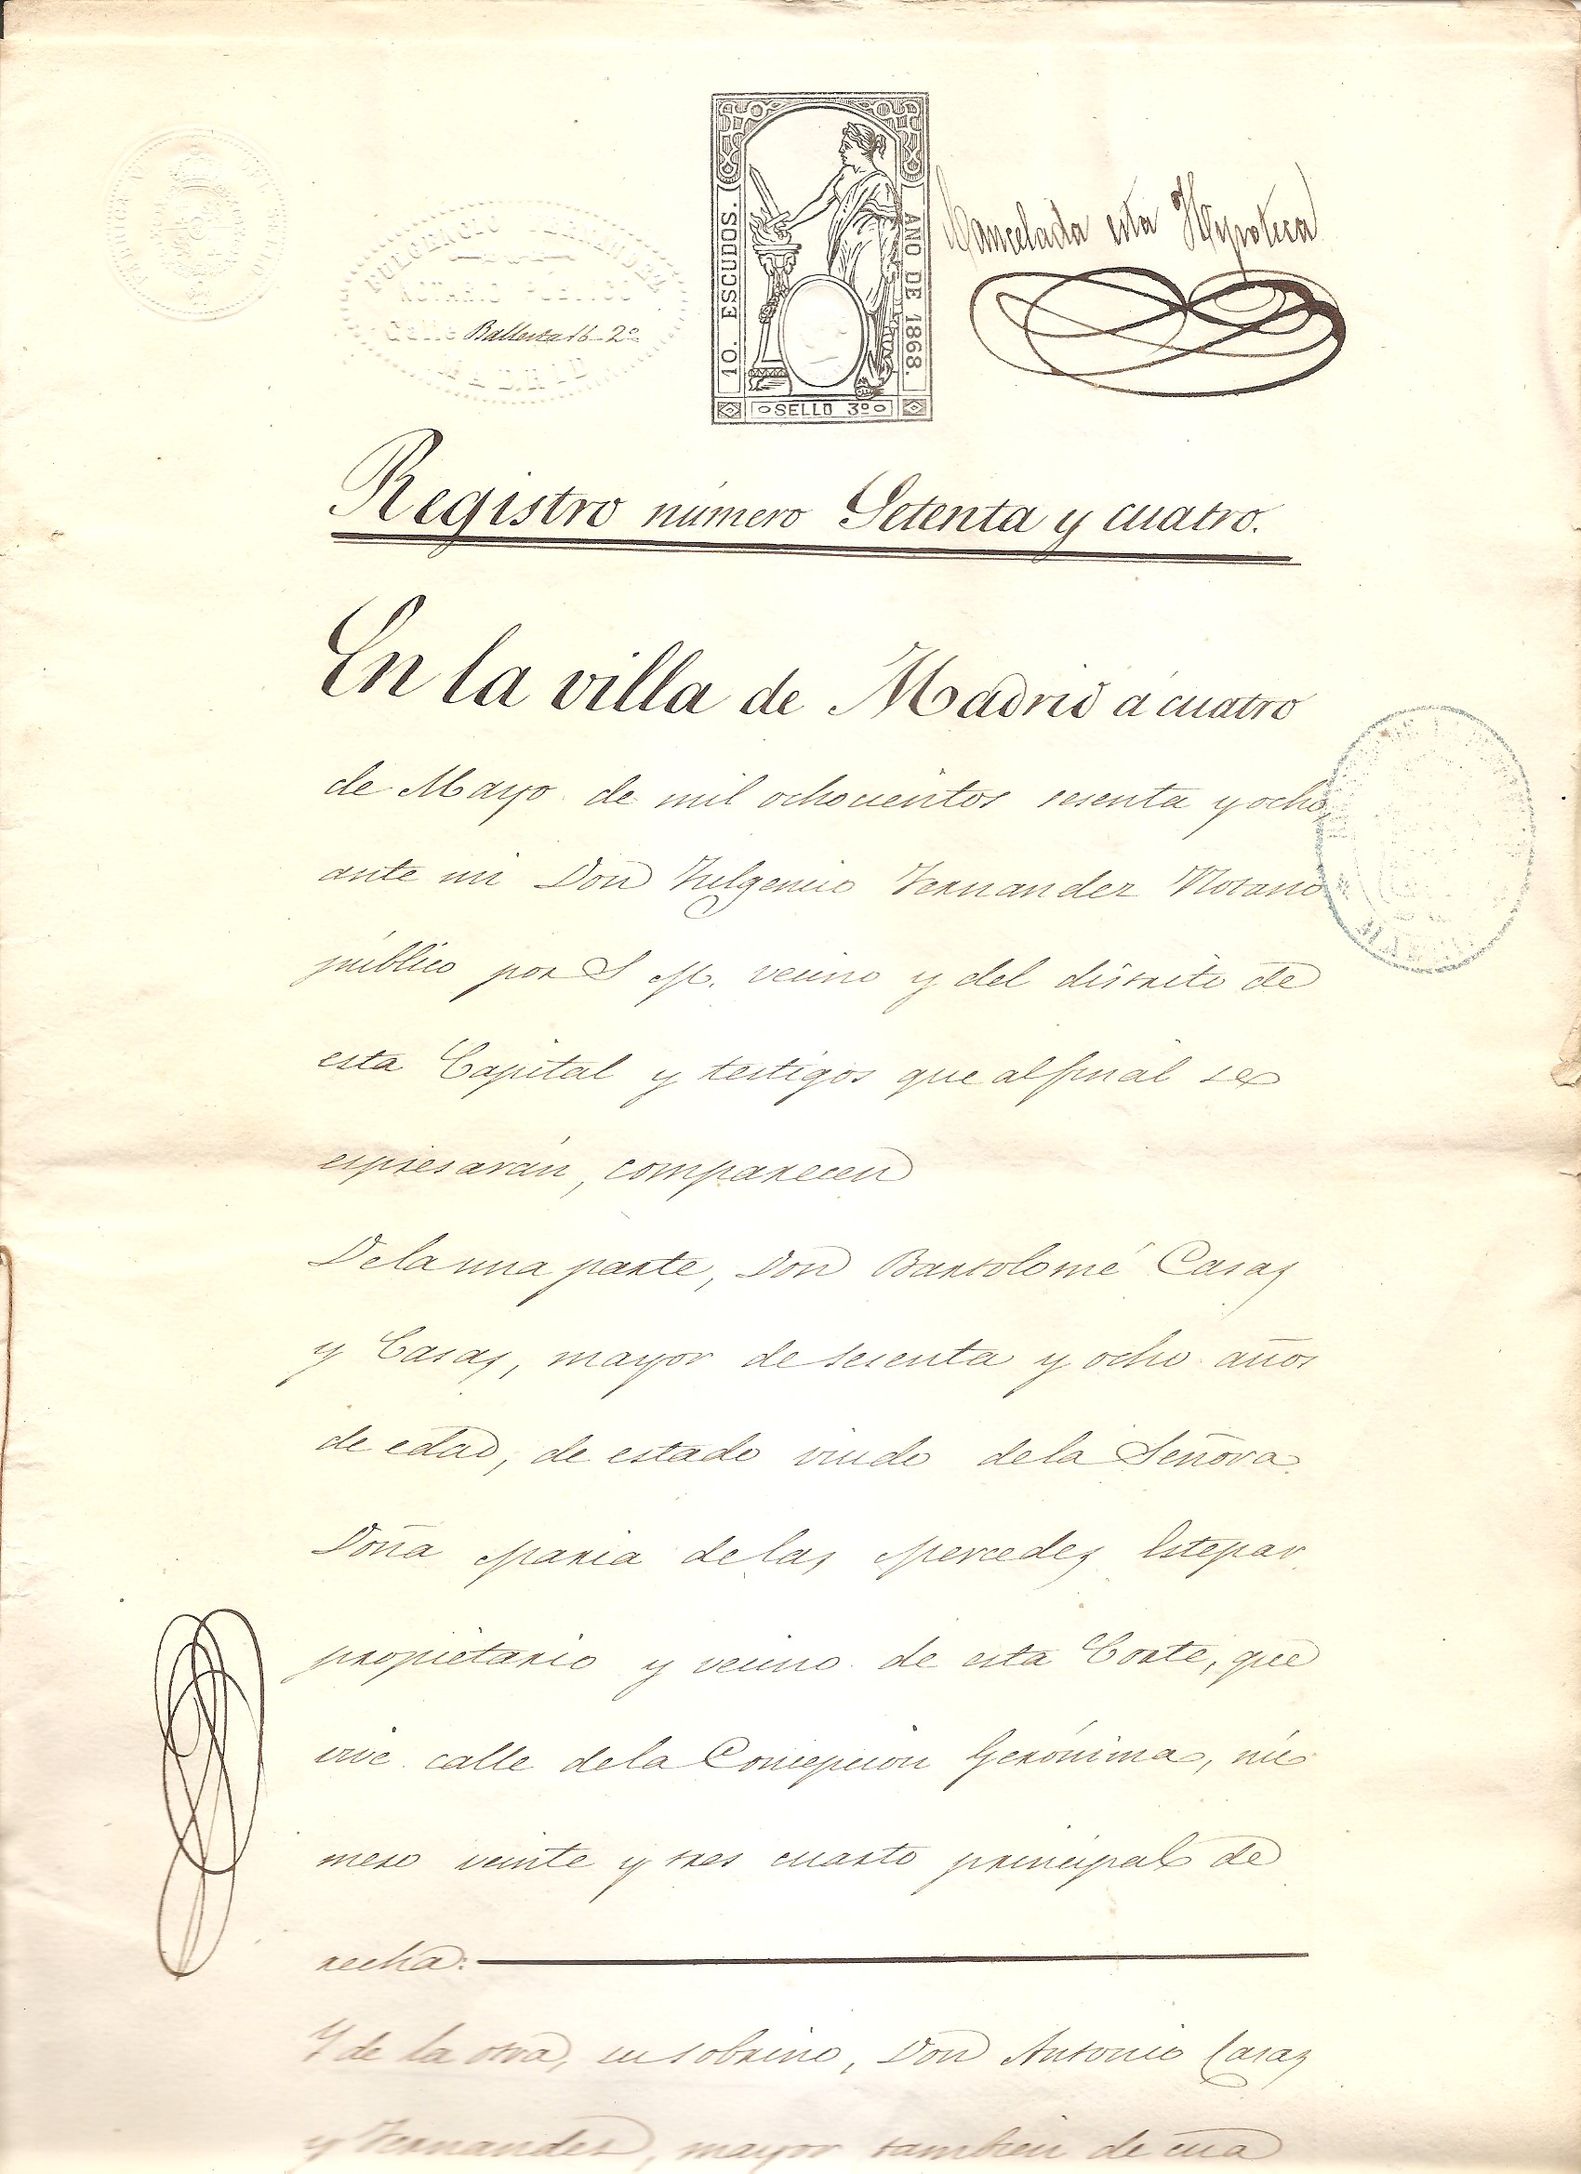 FULGENCIO FERNANDEZ
NOTARIO PUBLICO
Calle Ballesta 16-2º
MADRID
10. ESCUDOS.
AÑO DE 1868.
SELLO 3º
Cancelada esta Hypoteca
Registro número Setenta y cuatro.
En la villa de Madrid á cuatro
de Mayo de mil ochocientos sesenta y ocho,
ante mi Don Fulgencio Fernandez Notario
público por S M. vecino y del distrito de
esta Capital y testigos que al final se
espresarán, comparecen
De la una parte, Don Bartolomé Casas
y Casas, mayor de sesenta y ocho años
de edad, de estado viudo de la Señora
Doña Maria de las Mercedes Estepar
propietario y vecino de esta Corte, que
vive calle de la Concepcion Gerónima, nú
mero veinte y tres cuarto principal de
recha:
Y de la otra, su sobrino, Don Antonio Casas
y Fernandez, mayor tambien de cua